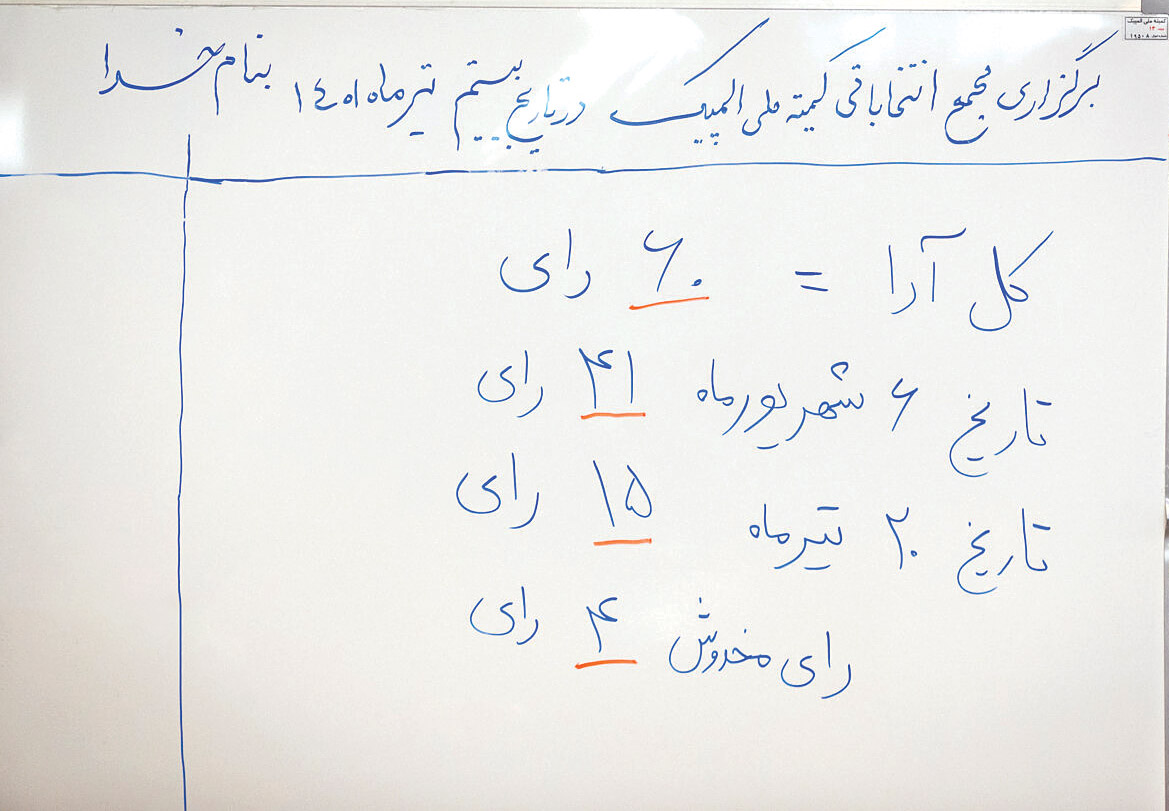 بنام خدا
برگزاری مجمع انتخاباتی کمیته ملی المپیک در تاریخ بیستم تیرماه ۱۴۰۱
کل آرا = ۶۰ رای
تاریخ ۶ شهریورماه ۴۱ رای
تاریخ ۲۰ تیرماه ۱۵ رای
رای مخدوش ۴ رای
کمیته ملی المپیک